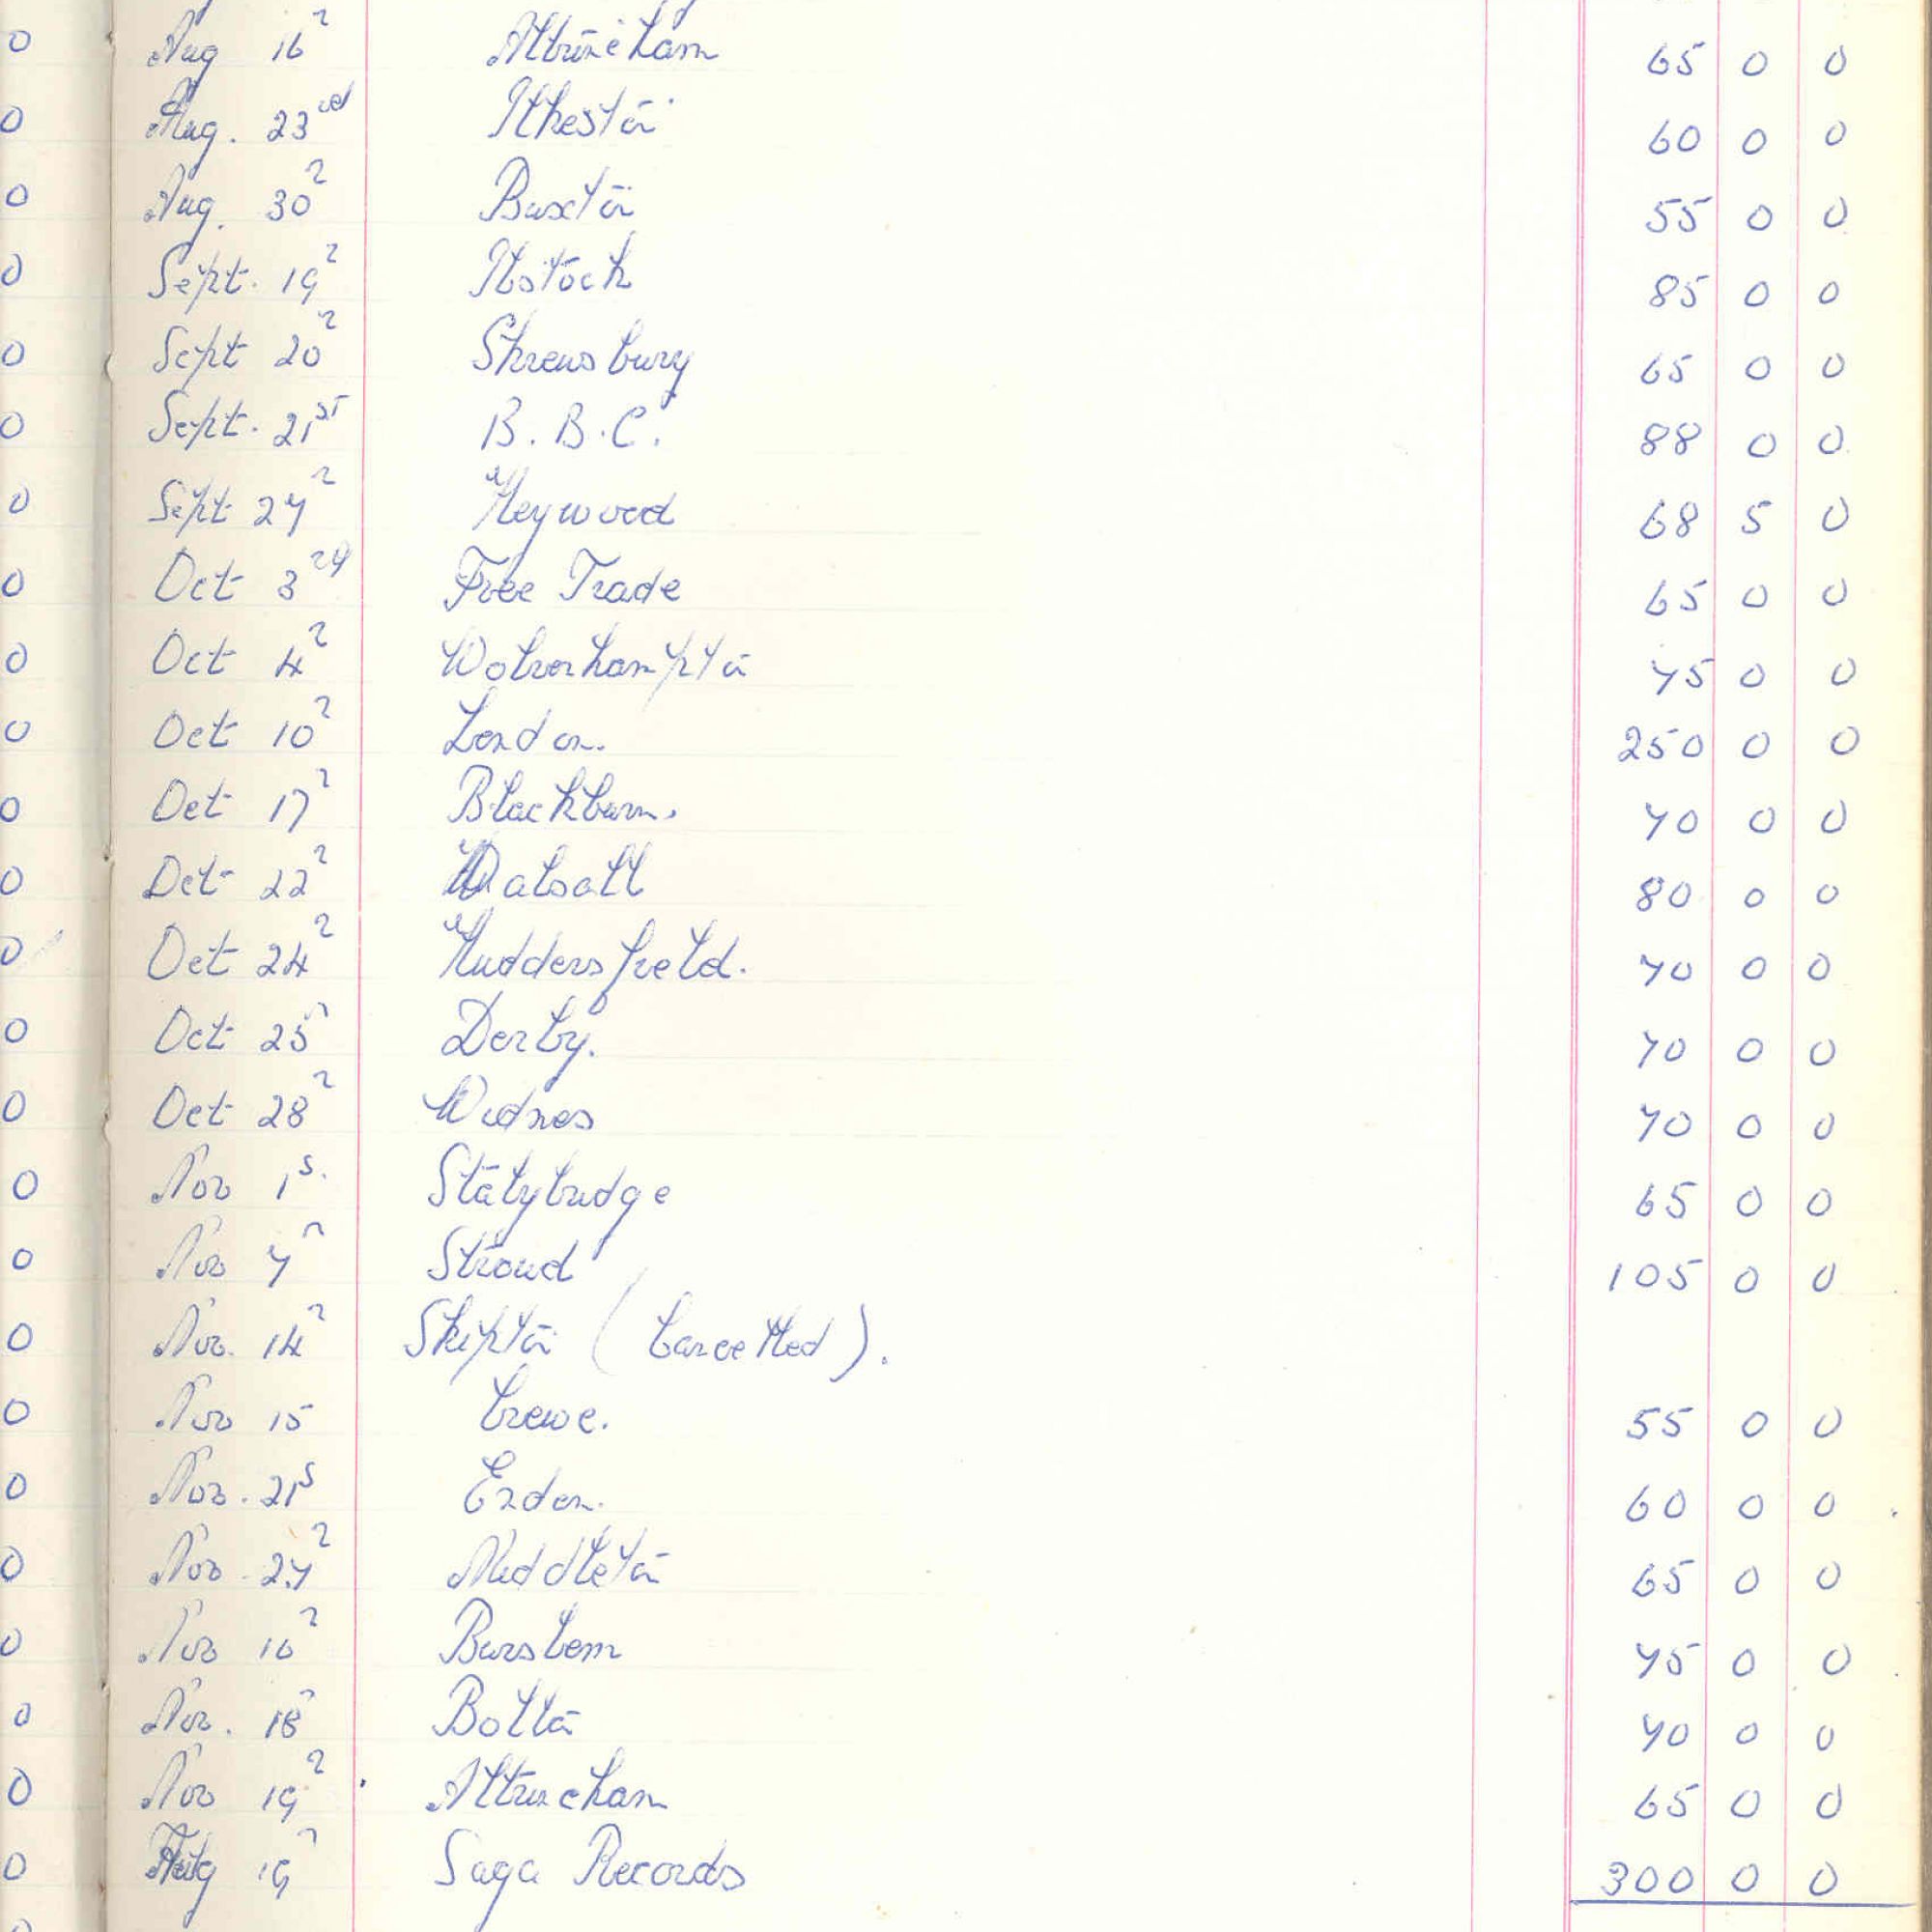 0 Aug 16th Altrincham 65 0 0
0 Aug. 23rd Ilkeston 60 0 0
0 Aug. 30th Buxton 55 0 0
0 Sept. 19th Ibstock 85 0 0
0 Sept 20th Shrewsbury 65 0 0
0 Sept. 21st B.B.C. 88 0 0
0 Sept 27th Heywood 68 5 0
0 Oct 3rd Free Trade 65 0 0
0 Oct 4th Wolverhampton 75 0 0
0 Oct 10th London. 250 0 0
0 Oct 17th Blackburn. 70 0 0
0 Oct 22nd Walsall 80 0 0
0 Oct 24th Huddersfield. 70 0 0
0 Oct 25th Derby. 70 0 0
0 Oct 28th Widnes 70 0 0
0 Nov 1s. Stalybridge 65 0 0
0 Nov 7th Stroud 105 0 0
0 Nov. 14th Skipton (Cancelled).
0 Nov 15 Crewe. 55 0 0
0 Nov. 21s Endon. 60 0 0
0 Nov. 27th Middleton 65 0 0
0 Nov 16th Burslem 75 0 0
0 Nov. 18th Bolton 70 0 0
0 Nov 19th Altrincham 65 0 0
0 Aug 19th Saga Records 300 0 0